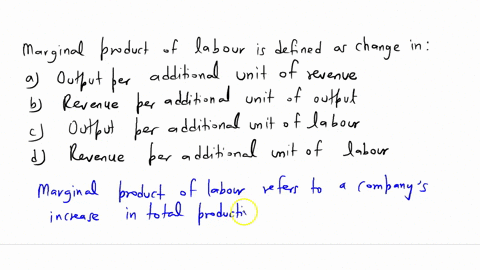 Marginal product of labour is defined as change in:
a) Output per additional unit of revenue
b) Revenue per additional unit of output
c) Output per additional unit of labour
d) Revenue per additional unit of labour
Marginal product of labour refers to a company's
increase in total producti